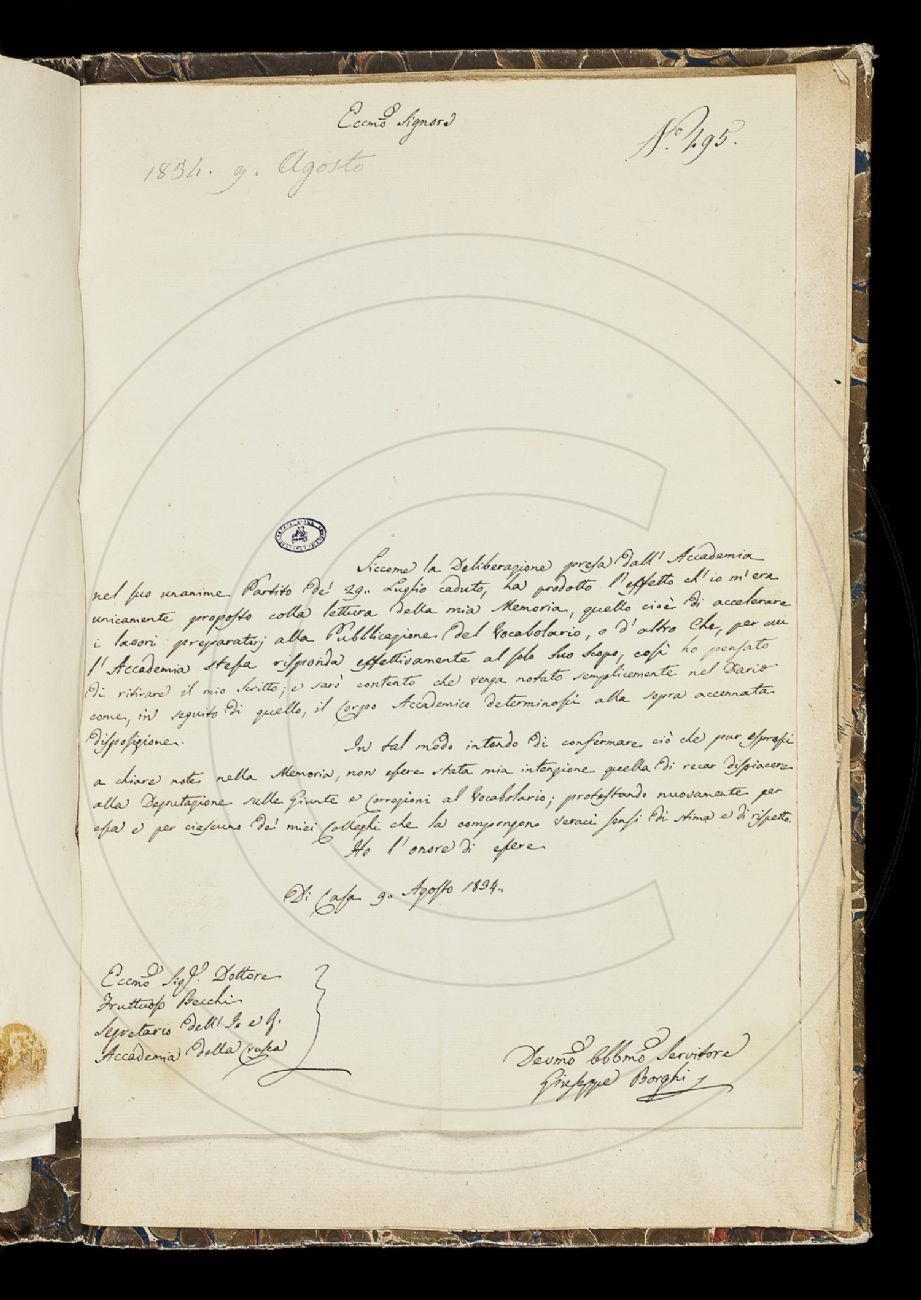 Eccmo Signore
N.° 495.
1834. 9. Agosto
Siccome la Deliberazione presa dall'Accademia
nel suo unanime Partito de' 29. Luglio caduto, ha prodotto l'effetto ch'io m'era
unicamente proposto colla lettura della mia Memoria, quello cioè di accelerare
i lavori preparatorj alla Pubblicazione del Vocabolario, o d'altro che, per cui
l'Accademia stessa risponda effettivamente al solo suo scopo, così ho pensato
di ritirare il mio scritto; e sarò contento che venga notato semplicemente nel Diario
come, in seguito di quello, il Corpo Accademico determinossi alla sopra accennata
disposizione.
In tal modo intendo di confermare ciò che pur espressi
a chiare note nella Memoria, non essere stata mia intenzione quella di recar dispiacere
alla Deputazione sulle Giunte e Correzioni al Vocabolario; protestando nuovamente per
essa e per ciascuno de' miei Colleghi che la compongono veraci sensi di stima e di rispetto.
Ho l'onore di essere
Di Casa 9. Agosto 1834.
Eccmo Sigr. Dottore
Fruttuoso Becchi
Segretario dell'I. e R.
Accademia della Crusca
Devmo Obbmo Servitore
Giuseppe Borghi